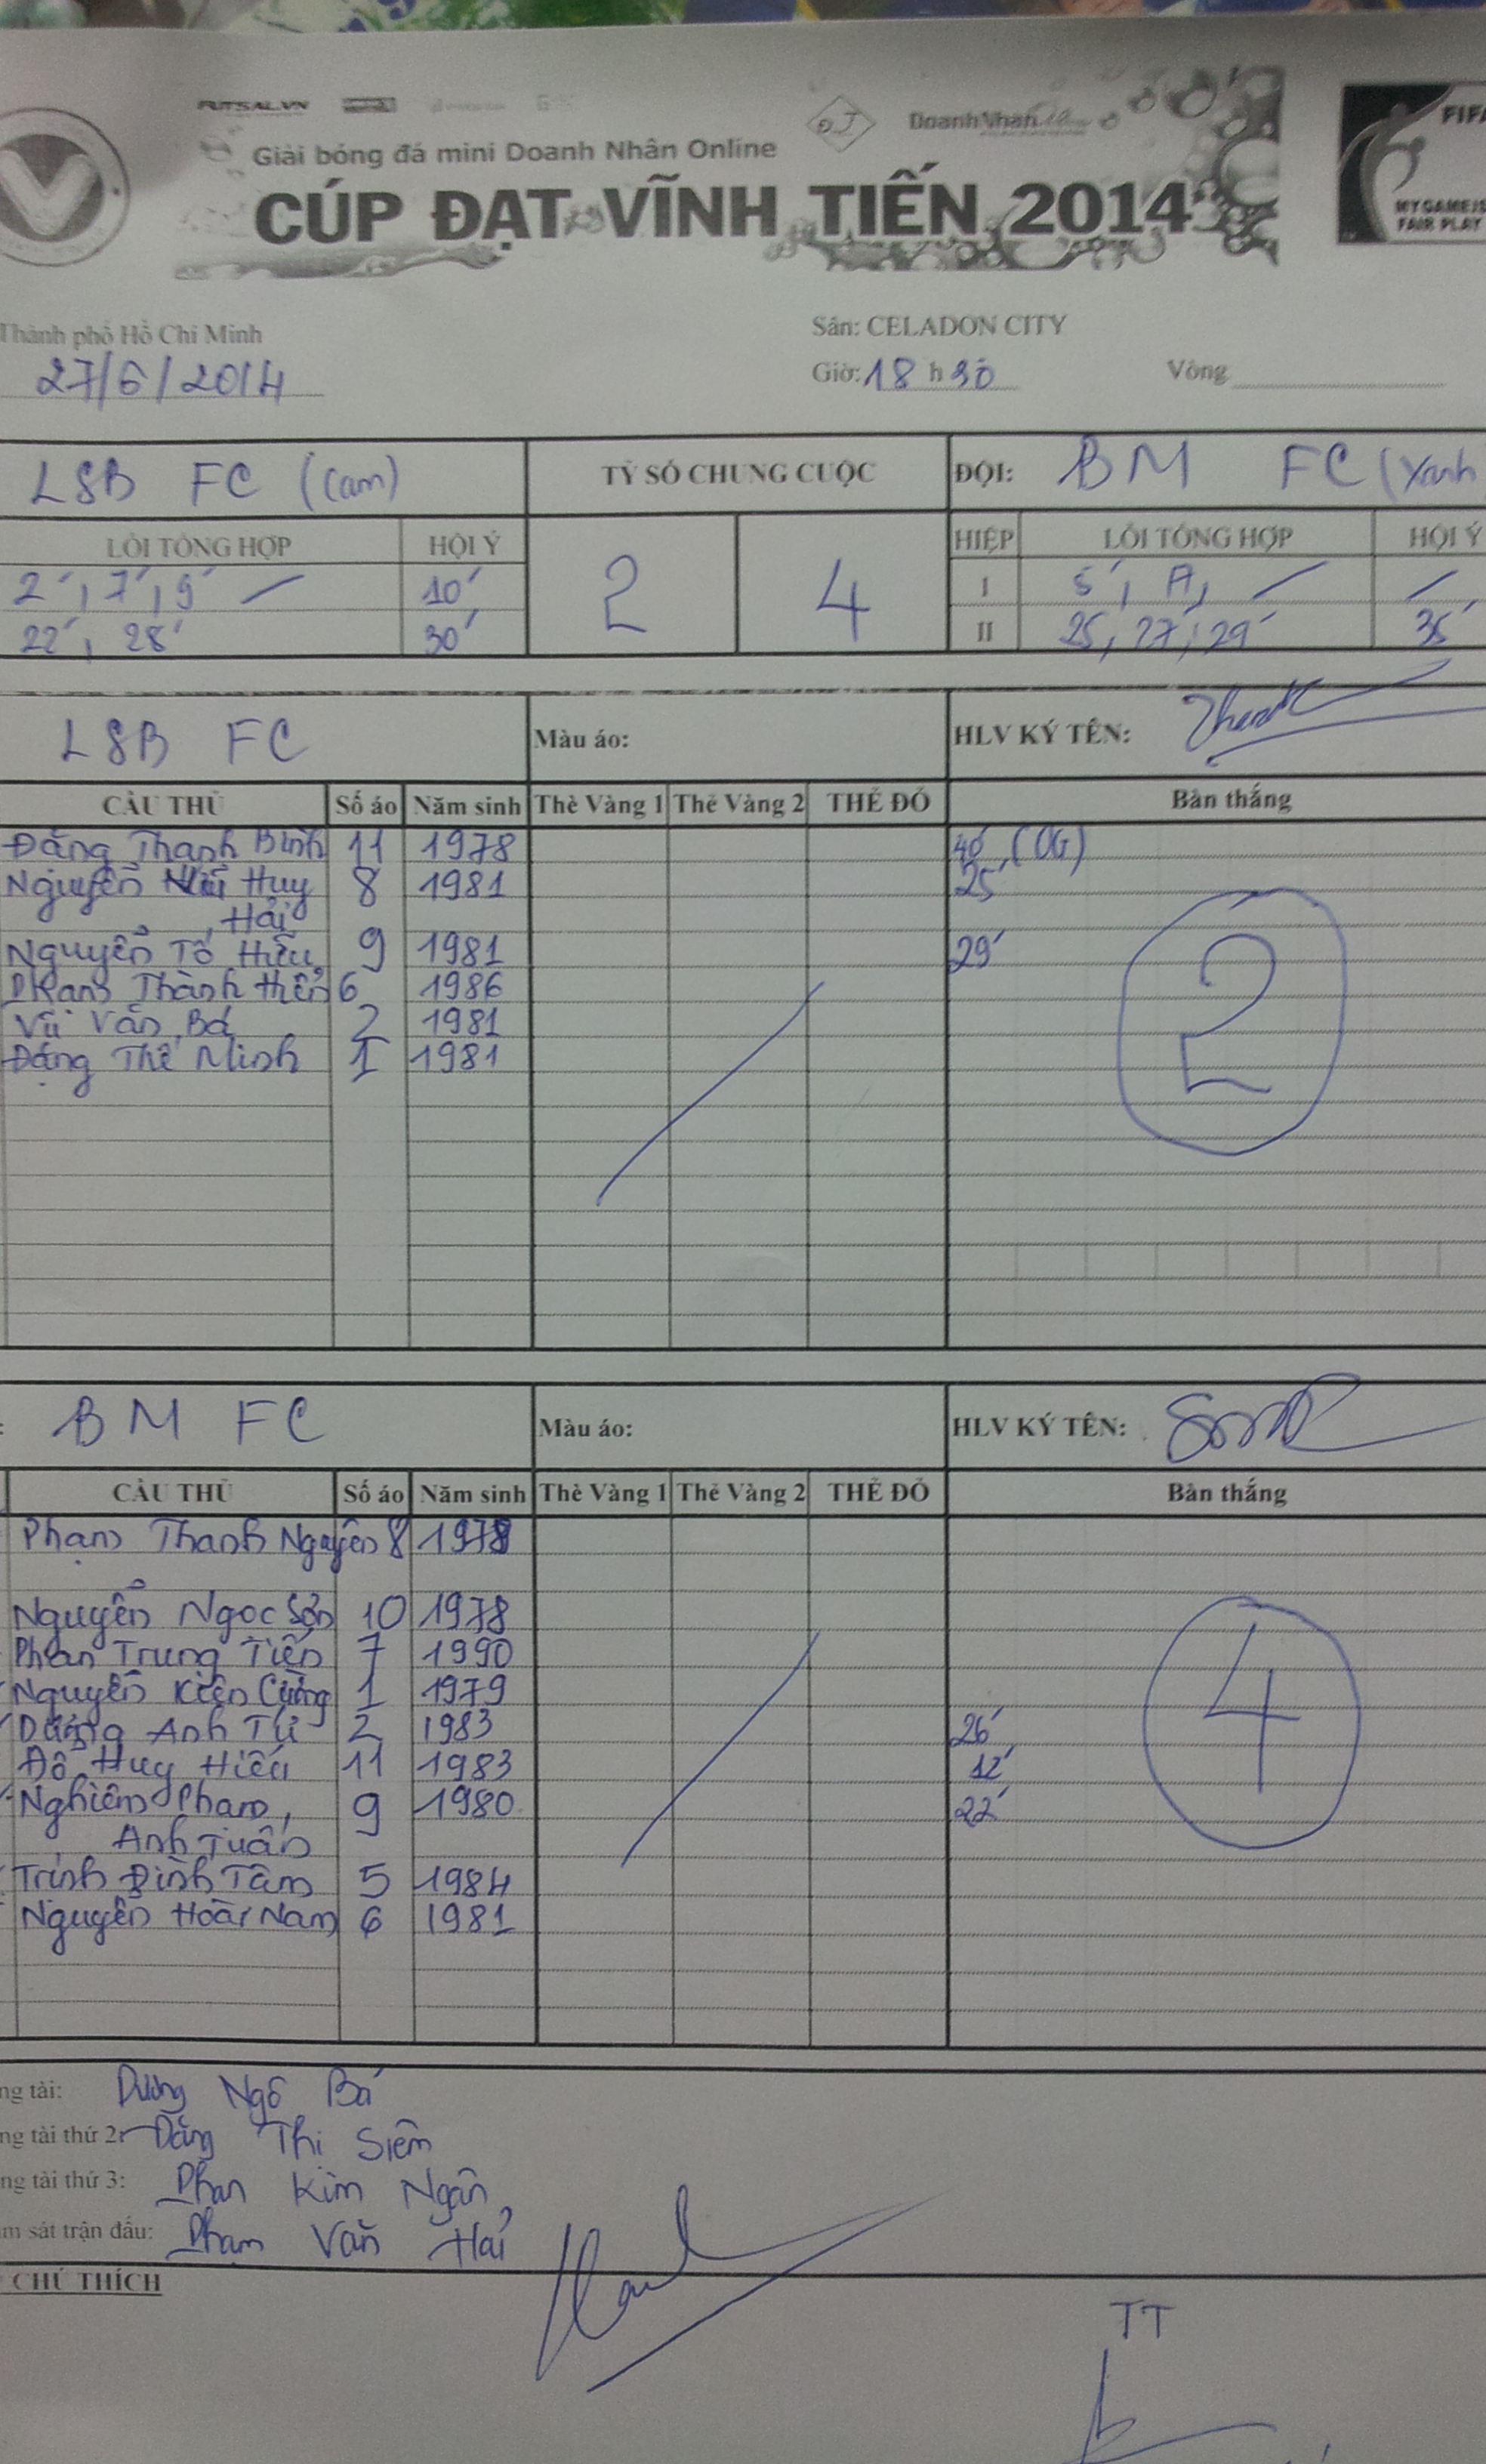 FUTSAL.VN
DoanhNhan
Giải bóng đá mini Doanh Nhân Online
CÚP ĐẠT VĨNH TIẾN 2014
FIFA
MY GAME IS
FAIR PLAY
Thành phố Hồ Chí Minh
Sân: CELADON CITY
27/6/2014
Giờ: 18 h 30 Vòng
LSB FC (Cam) TỶ SỐ CHUNG CUỘC ĐỘI: BM FC (Xanh
LỖI TỔNG HỢP HỘI Ý 2 4 HIỆP LỖI TỔNG HỢP HỘI Ý
2', 7', 9' 10' I 5',
22', 28' 30' II 25, 27', 29' 35'
LSB FC Màu áo: HLV KÝ TÊN:
CẦU THỦ Số áo Năm sinh Thẻ Vàng 1 Thẻ Vàng 2 THẺ ĐỎ Bàn thắng
Đặng Thanh Bình 11 1978 40' (OG)
Nguyễn Huy 8 1981 25'
Hải
Nguyễn Tố Hữu 9 1981 29'
Phạm Thành Hiển 6 1986
Vũ Văn Bá 2 1981
Đặng Thế Minh 1 1981
2
BM FC Màu áo: HLV KÝ TÊN:
CẦU THỦ Số áo Năm sinh Thẻ Vàng 1 Thẻ Vàng 2 THẺ ĐỎ Bàn thắng
Phạm Thanh Nguyên 8 1978
Nguyễn Ngọc Sơn 10 1978
Phan Trung Tiến 7 1990
Nguyễn Kiên Cường 1 1979
Dương Anh Tú 2 1983 26'
Đỗ Huy Hiếu 11 1983 12'
Nghiêm Phạm 9 1980 22'
Anh Tuấn
Trịnh Đình Tâm 5 1984
Nguyễn Hoài Nam 6 1981
4
ng tài: Dương Ngô Bá
ng tài thứ 2: Đặng Thị Siêm
ng tài thứ 3: Phan Kim Ngân
m sát trận đấu: Phạm Văn Hải
CHÚ THÍCH
TT